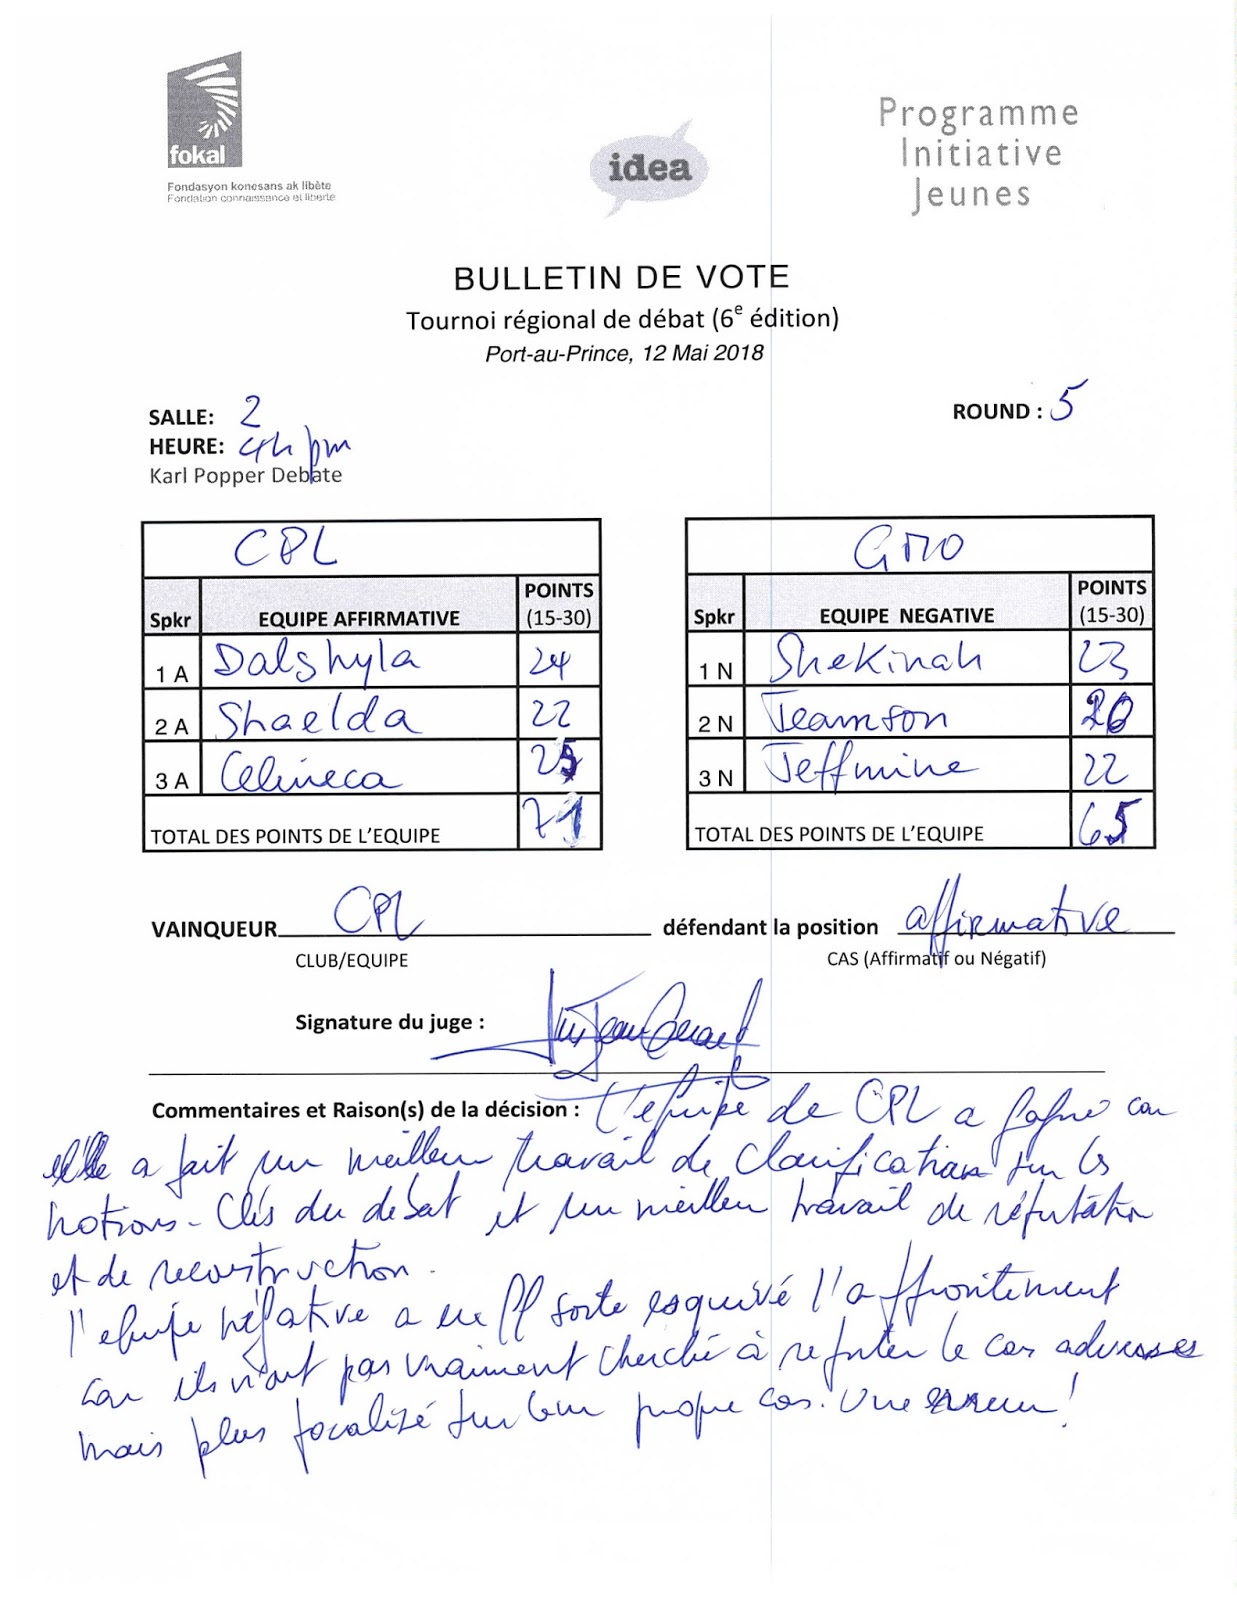 fokal
Fondasyon konesans ak libète
Fondation connaissance et liberté
idea
Programme
Initiative
Jeunes
BULLETIN DE VOTE
Tournoi régional de débat (6e édition)
Port-au-Prince, 12 Mai 2018
SALLE: 2
ROUND : 5
HEURE: 4h pm
Karl Popper Debate
CPL
Spkr EQUIPE AFFIRMATIVE POINTS (15-30)
1 A Dalshyla 24
2 A Shaelda 22
3 A Celineca 25
TOTAL DES POINTS DE L'EQUIPE 71
GMO
Spkr EQUIPE NEGATIVE POINTS (15-30)
1 N Shekinah 23
2 N Jeamson 20
3 N Jeffmine 22
TOTAL DES POINTS DE L'EQUIPE 65
VAINQUEUR CPL défendant la position affirmative
CLUB/EQUIPE CAS (Affirmatif ou Négatif)
Signature du juge :
Commentaires et Raison(s) de la décision : L'équipe de CPL a gagné car
elle a fait un meilleur travail de clarification sur les
notions-clés du debat et un meilleur travail de réfutation
et de reconstruction.
l'equipe négative a en sorte esquivé l'affrontement
car ils n'ont pas vraiment cherché à refuter le cas adverses
mais plus focalizé sur leur propre cas. Une erreur!